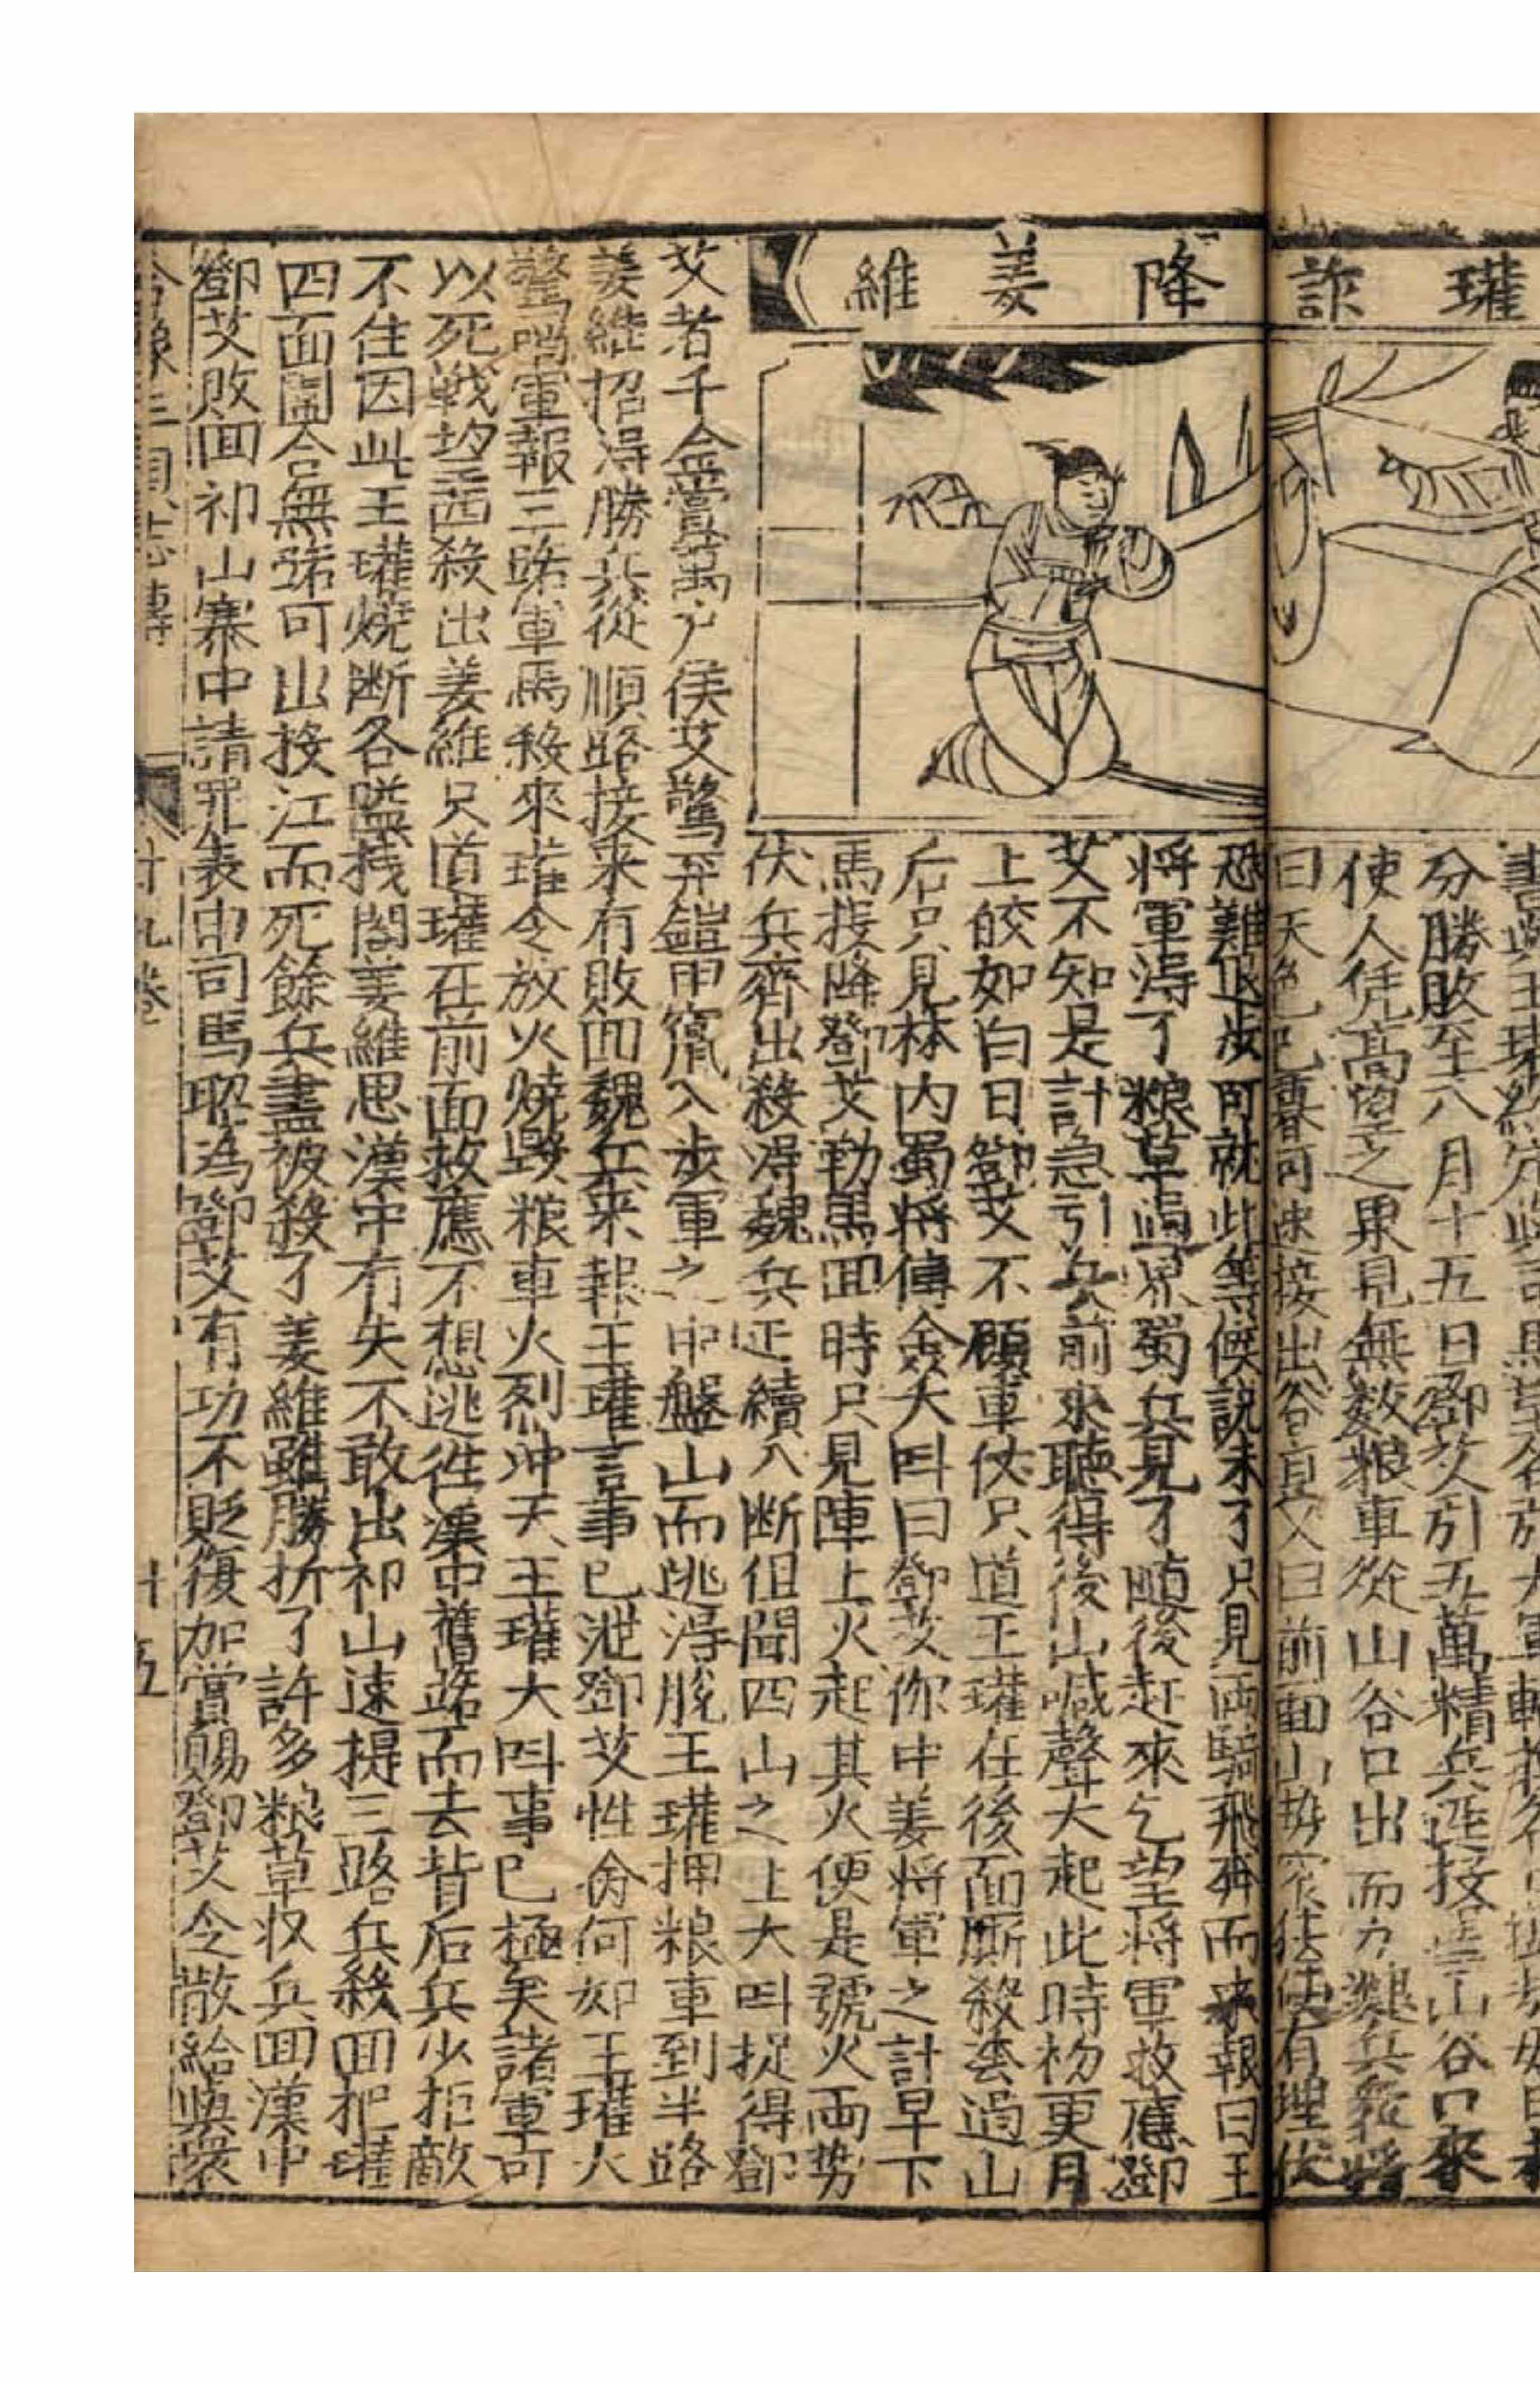 瓘詐
降姜維
分勝敗至八月十五日鄧艾引五萬精兵逕接山谷口來
使人凭高望之果見無数粮車從山谷口出而力兵將
曰天色已可速接出谷艾曰前面山有埋伏
恐難退步可就此等候說未了只見両騎飛奔而来報曰王
将軍得了粮草過界蜀兵見了随後赶來乞望将軍救應鄧
艾不知是計急引兵前來聽得後山喊聲大起此時初更月
上皎如白日鄧艾不顧車仗只道王瓘在後面厮殺徑過山
后只見林内蜀将傅僉大呌曰鄧艾你中姜将軍之計早下
馬接降鄧艾勒馬回時只見陣上火起其火便是號火両势
伏兵齊出殺得魏兵断續八断但聞四山之上大呌捉得鄧
艾者千金賞萬户侯艾驚弃鎧甲竄入步軍之中盤山而逃得脫王瓘押粮車到半路
姜維招得勝兵從順路接来有敗回魏兵来報王瓘言事已泄鄧艾性命何如王瓘大
驚哨軍報三路軍馬殺來瓘令放火燒毀粮車火烈冲天王瓘大呌事已極矣諸軍可
以死戰望西殺出姜維只道瓘在前面救應不想逃徃漢中舊路而去背后兵少拒敵
不住因此王瓘燒断各隘栈閣姜維思漢中有失不敢出祁山速提三路兵殺回把瓘
四面圍合無路可出投江而死餘兵盡被殺了姜維雖勝折了許多粮草收兵回漢中
鄧艾敗回祁山寨中請罪表申司馬昭為鄧艾有功不貶復加賞賜鄧艾令散給與衆
全像三國志傳
十九卷
十五